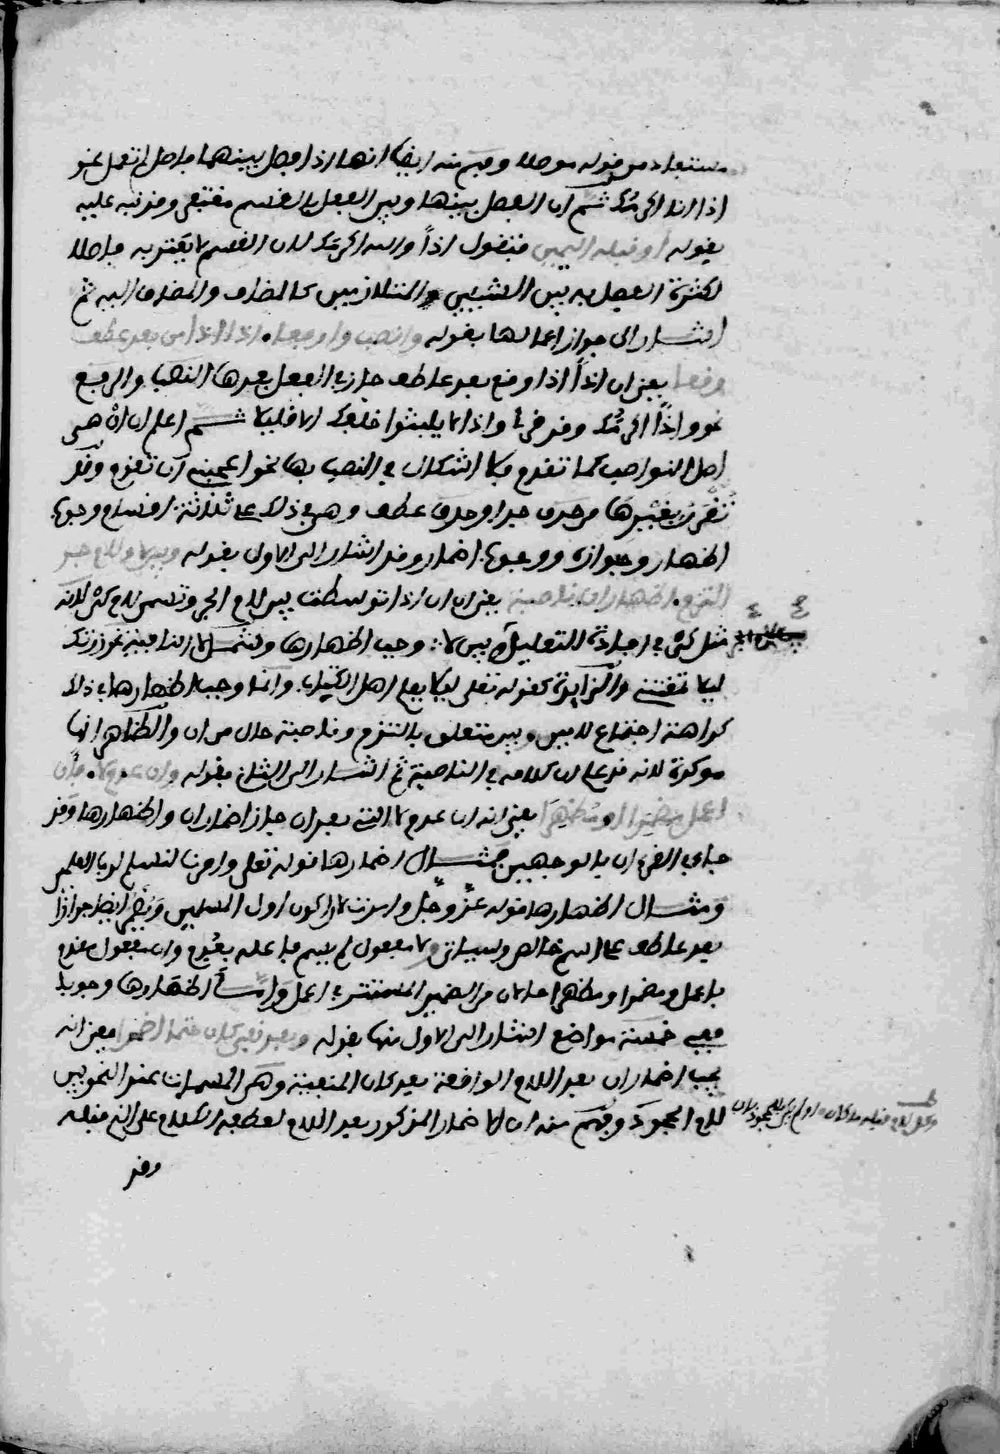 مستفاد من قوله موصلا وفهم منه ايضا انها اذا فصل بينهما فاصل لم تعمل نحو
اذا انا اكرمك ثم ان الفصل بينها وبين الفعل بالقسم مغتفر وقد نبه عليه
بقوله او قبله اليمين فتقول اذا والله اكرمك لان القسم لا يعتد به فاصلا
لكثرة الفصل به بين الشيئين المتلازمين كالمضاف والمضاف اليه ثم
اشار الى جواز اعمالها بقوله وانصب وارفعا اذا اذا من بعد عطف
وقعا يعني ان اذا اذا وقع بعد عاطف جاز في الفعل بعدها النصب والرفع
نحو واذا اكرمك وقد قرئ واذا لا يلبثوا خلفك الا قليلا ثم اعلم ان ان هي
اصل النواصب كما تقدم فلا اشكال في النصب بها نحو اعجبني ان تقوم وقد
تضمر بغيرها من حرف جر او حرف عطف وهي في ذلك على ثلاثة اقسام وجوب
اظهار وجواز ووجوب اضمار وقد اشار الى الاول بقوله وبين لا ولام جر
التزم اظهار ان ناصبة يعني ان ان اذا توسطت بين لام الجر وتسمى لام كي لانها
مثل كي في افادة التعليل وبين لا وجب اظهارها وتشمل لا النافية نحو زرتك
ليلا تمقتني والزايدة كقوله تعلى ليلا يعلم اهل الكتاب وانما وجب اظهارها في ذلك
كراهة اجتماع لامين وبين متعلق بالتزم وناصبة حال من ان والظاهر انها
موكدة لانه قد علم ان كلامه في الناصبة ثم اشار الى الثاني بقوله وان عدم لا فان
اعمل مضمرا او مظهرا يعني انه ان عدم لا التي بعد ان جاز اضمار ان واظهارها وقد
جاء في القرءان بالوجهين فمثال اضمارها قوله تعلى وامرنا لنسلم لرب العلمين
ومثال اظهارها قوله عز وجل وامرت لان اكون اول المسلمين وتضمر ايضا جوازا
بعد عاطف على اسم خالص وسياتي ولا مفعول لم يسم فاعله بعدم وان مفعول مقدم
باعمل ومضمرا ومظهرا حالان من الضمير المستتر في اعمل واما اظهارها وجوبا
ففي خمسة مواضع اشار الى الاول منها بقوله وبعد نفي كان حتما اضمرا يعني انه
يجب اضمار ان بعد اللام الواقعة بعد كان المنفية وهي المسماة عند النحويين
لام الجحود وفهم منه ان الاضمار المذكور بعد اللام لعطفه الكلام على الذي قبله
وقد